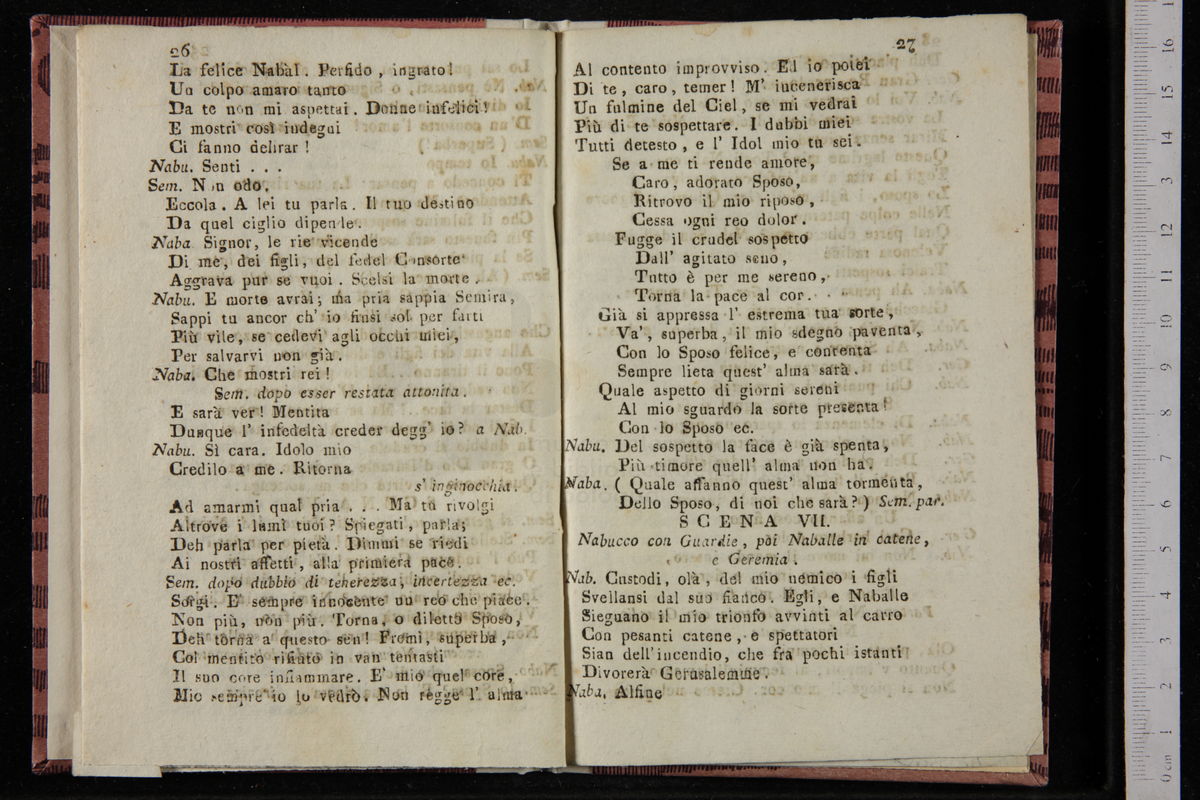 26
La felice Nabal. Perfido, ingrato!
Un colpo amaro tanto
Da te non mi aspettai. Donne infelici!
E mostri così indegni
Ci fanno delirar!
Nabu. Senti . . .
Sem. Non odo.
Eccola. A lei tu parla. Il tuo destino
Da quel ciglio dipende.
Naba. Signor, le rie vicende
Di me, dei figli, del fedel Consorte
Aggrava pur se vuoi. Scelsi la morte.
Nabu. E morte avrai; ma pria sappia Semira,
Sappi tu ancor ch' io finsi sol per farti
Più vile, se cedevi agli occhi miei,
Per salvarvi non già.
Naba. Che mostri rei!
Sem. dopo esser restata attonita.
E sarà ver! Mentita
Dunque l' infedeltà creder degg' io? a Nab.
Nabu. Sì cara. Idolo mio
Credilo a me. Ritorna
s' inginocchia.
Ad amarmi qual pria . . . Ma tu rivolgi
Altrove i lumi tuoi? Spiegati, parla;
Deh parla per pietà. Dimmi se riedi
Ai nostri affetti, alla primiera pace.
Sem. dopo dubbio di tenerezza, incertezza ec.
Sorgi. E' sempre innocente un reo che piace.
Non più, non più. Torna, o diletto Sposo,
Deh torna a questo sen! Fremi, superba,
Col mentito rifiuto in van tentasti
Il suo core infiammare. E' mio quel core,
Mio sempre io lo vedrò. Non regge l' alma
27
Al contento improvviso. Ed io potei
Di te, caro, temer! M' incenerisca
Un fulmine del Ciel, se mi vedrai
Più di te sospettare. I dubbi miei
Tutti detesto, e l' Idol mio tu sei.
Se a me ti rende amore,
Caro, adorato Sposo,
Ritrovo il mio riposo,
Cessa ogni reo dolor.
Fugge il crudel sospetto
Dall' agitato seno,
Tutto è per me sereno,
Torna la pace al cor.
Già si appressa l' estrema tua sorte,
Va', superba, il mio sdegno paventa,
Con lo Sposo felice, e contenta
Sempre lieta quest' alma sarà.
Quale aspetto di giorni sereni
Al mio sguardo la sorte presenta!
Con lo Sposo ec.
Nabu. Del sospetto la face è già spenta,
Più timore quell' alma non ha.
Naba. ( Quale affanno quest' alma tormenta,
Dello Sposo, di noi che sarà? ) Sem. par.
SCENA VII.
Nabucco con Guardie, poi Naballe in catene,
e Geremia.
Nab. Custodi, olà, del mio nemico i figli
Svellansi dal suo fianco. Egli, e Naballe
Sieguano il mio trionfo avvinti al carro
Con pesanti catene, e spettatori
Sian dell'incendio, che fra pochi istanti
Divorerà Gerusalemme.
Naba. Alfine